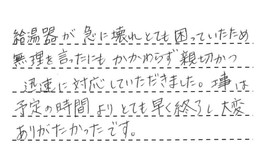 給湯器が急に壊れとても困っていたため
無理を言ったにもかかわらず親切かつ
迅速に対応していただきました。工事は
予定の時間よりとても早く終了し大変
ありがたかったです。